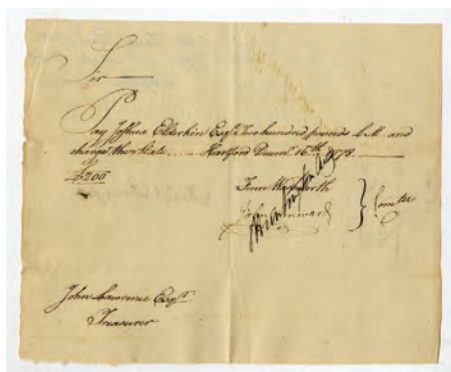 Sir
Pay Joshua Elderkin Esqr Two hundred pounds L.M. and
charge the State. Hartford Decemr. 16th. 1778.
£200
Fenn Wadsworth
Comtee
John Lawrence Esqr.
Treasurer